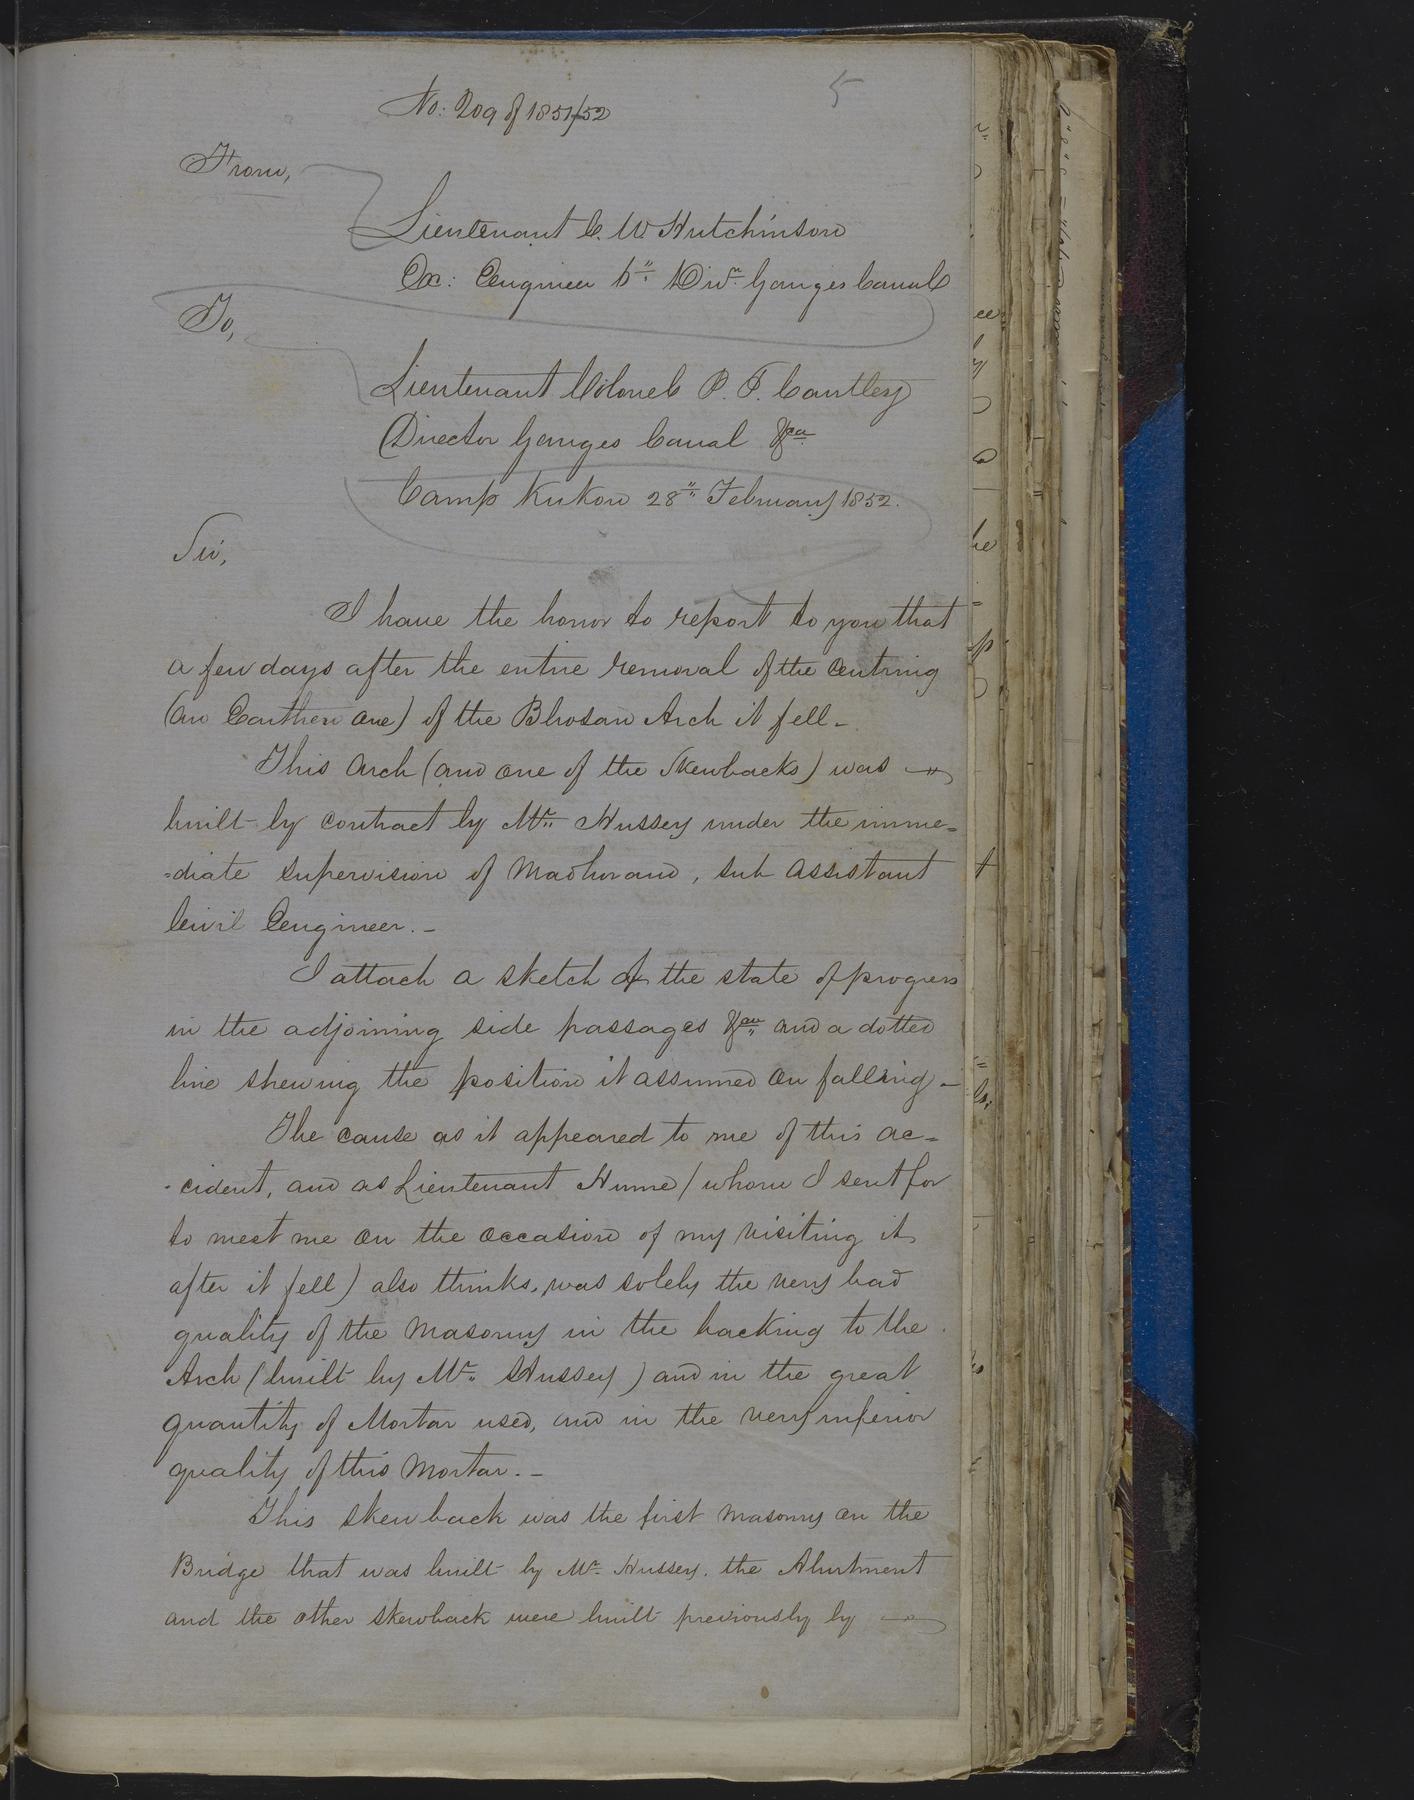 5
No: 209 of 1851/52
From,
Lieutenant C. W Hutchinson
Ex: Engineer Divn. Ganges Canal
To,
Lieutenant Colonel P. T. Cautley
Director Ganges Canal &ca
Camp Kukow 28" February 1852.
Sir,
I have the honor to report to you that
a few days after the entire removal of the Centring
(an Earthen one) of the Bhosan Arch it fell-
This Arch (and one of the Skewbacks) was
built by contract by Mr. Hussey under the imme=
=diate supervision of Madhorand, sub Assistant
Civil Engineer.-
I attach a sketch of the state of progress
in the adjoining side passages &ca and a dotted
line shewing the position it assumed on falling-
The cause as it appeared to me of this ac=
-cident, and as Lieutenant Hume (whom I sent for
to meet me on the occasion of my visiting it
after it fell) also thinks, was solely the very bad
quality of the Masonry in the backing to the
Arch (built by Mr. Hussey) and in the great
quantity of Mortar used, and in the very inferior
quality of this Mortar.-
This skewback was the first Masonry on the
Bridge that was built by Mr. Hussey. the Abutment
and the other skewback were built previously by